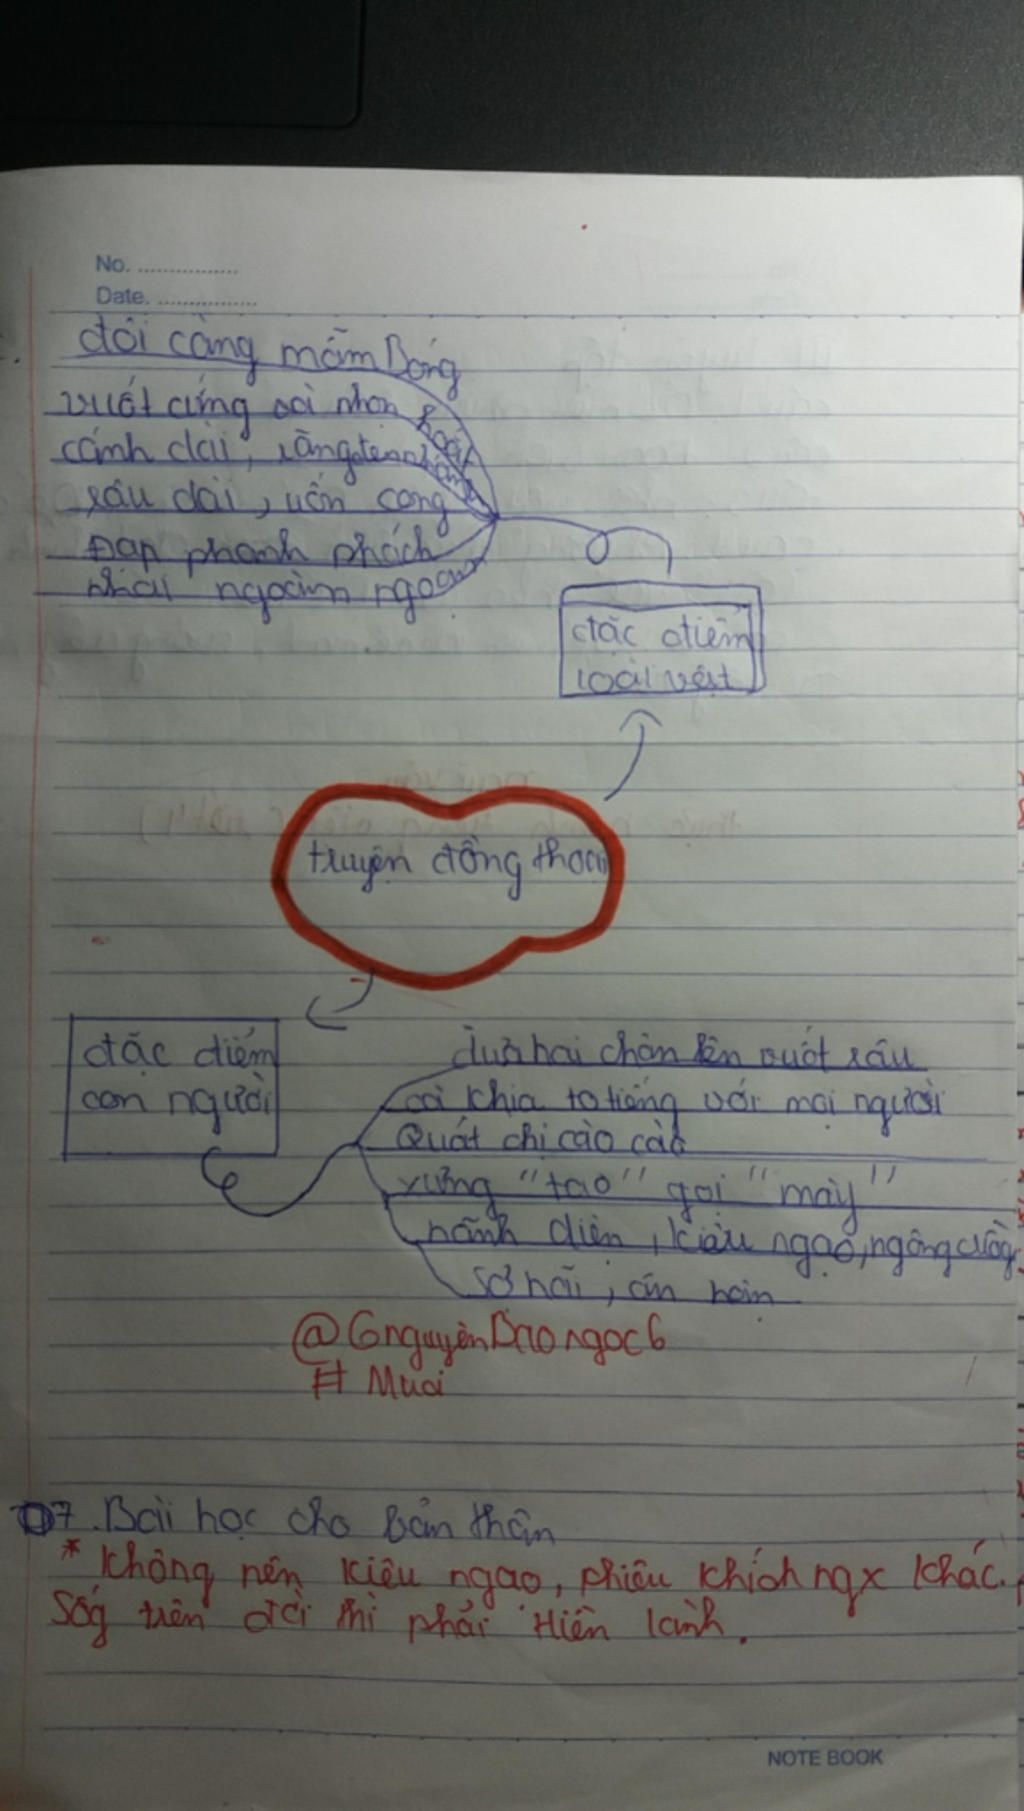 No. ................
Date. ................
đôi càng mẫm bóng
vuốt cứng và nhọn hoắt
cánh dài, răng đen nhánh
râu dài, uốn cong
Đạp phanh phách
nhai ngoàm ngoạm
đặc điểm
loài vật
truyện đồng thoại
đặc điểm
con người
đưa hai chân lên vuốt râu
cà khịa to tiếng với mọi người
Quát chị cào cào
xưng "tao" gọi "mày"
hãnh diện, kiêu ngạo, ngông cuồng
sợ hãi, ân hận
@GnguyênBaongọc6
# Muoi
7. Bài học cho bản thân
* không nên kiêu ngạo, phiêu khích ngx khác.
Sốg trên đời thì phải Hiền lành.
NOTE BOOK